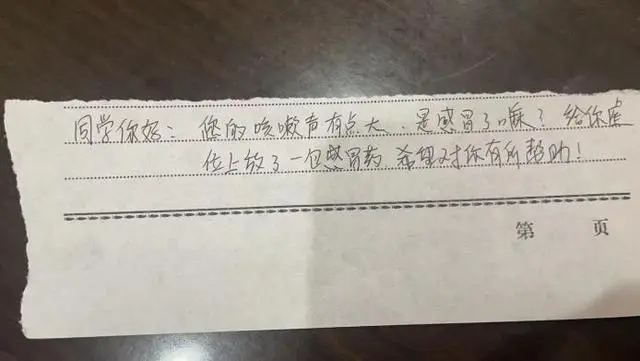 同学你好：您的咳嗽声有点大，是感冒了嘛？给你座
位上放了一包感冒药 希望对你有所帮助！
第 页